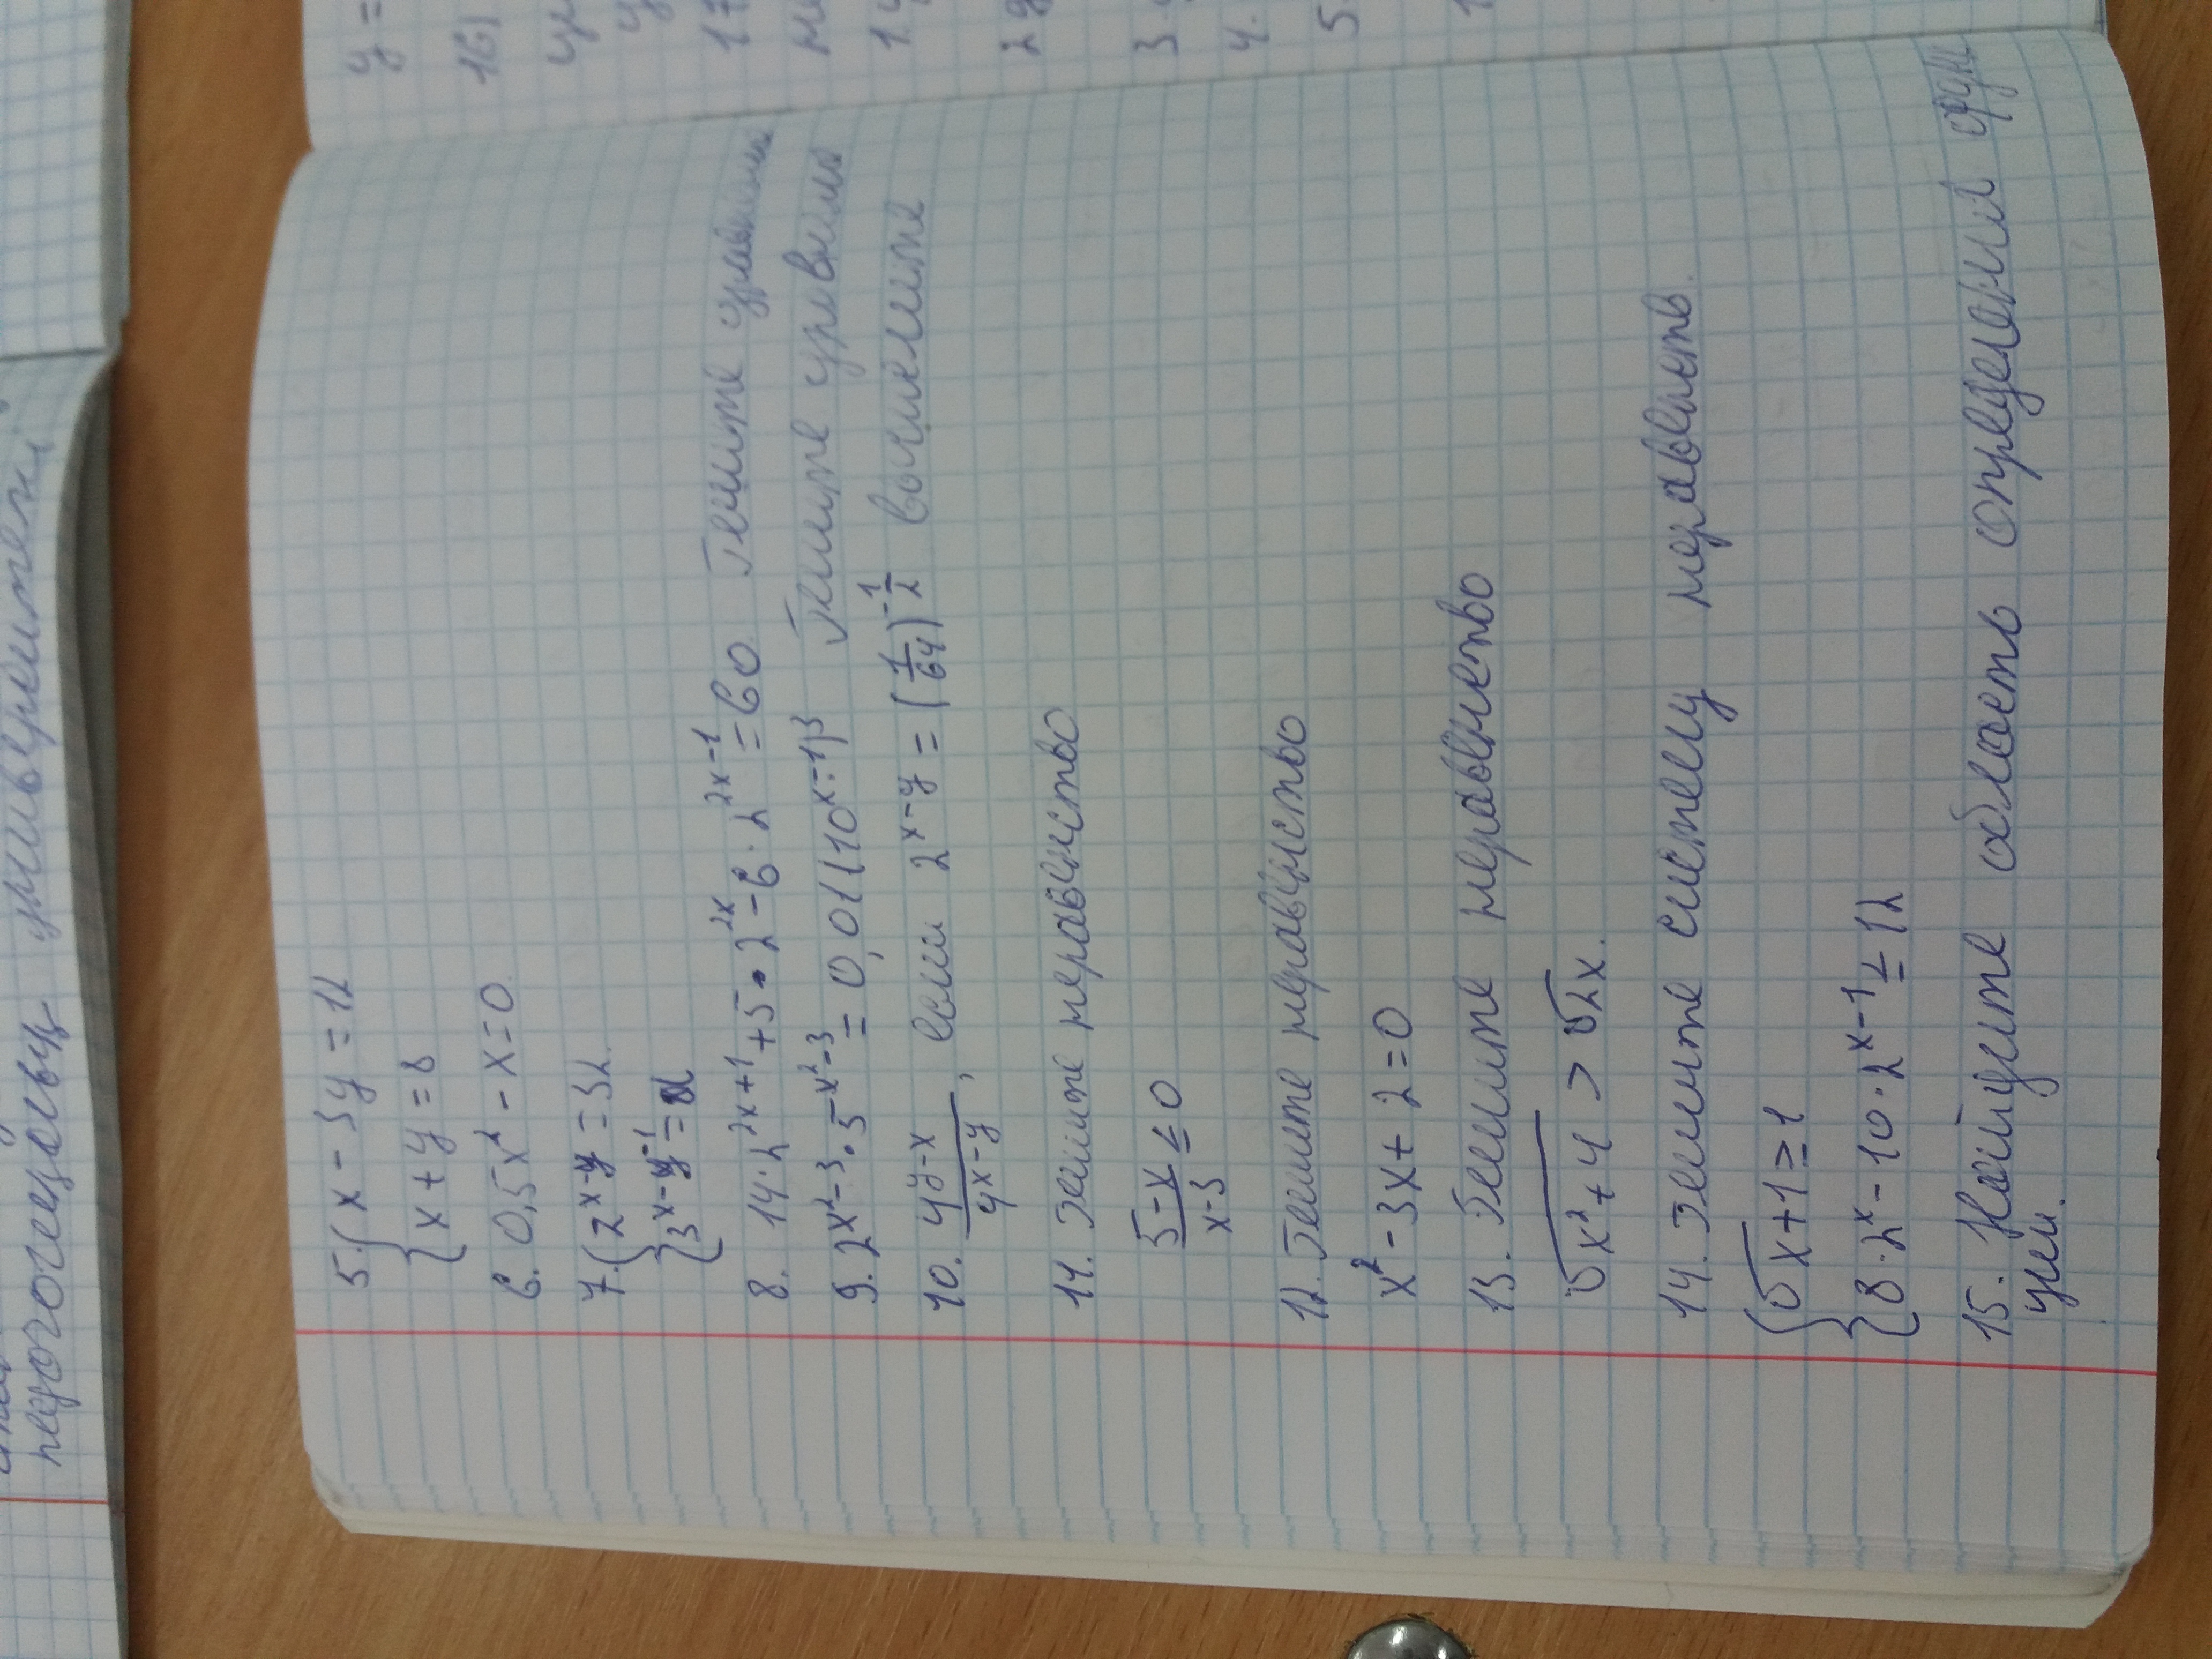 педогогецовы универитет
5. { x - 3y = 12
{ x + y = 8
6. 0,5x² - x = 0.
7. { 2^x-y = 32
{ 3^x-y-1 =
8. 14·2^2x+1 + 5·2^2x - 6·2^2x-1 = 60. Решите
9. 2^x²-3 · 5^x²-3 = 0,01(10^x-1)³ Решите
10. 4^y-x / 4^x-y, если 2^x-y = (1/64)^-1/2 вычислите
11. Решите неравенство
5-x / x-3 ≤ 0
12. Решите неравенство
x² - 3x + 2 = 0
13. Решите неравенство
√x²+4 > √2x.
14. Решите систему неравенств.
{ √x+1 ≥ 1
{ 8·2^x - 10·2^x-1 ≤ 12
15. Найдите область определения функ
ции.
y =
16)
y
17
1.
2
3
4.
5.
1